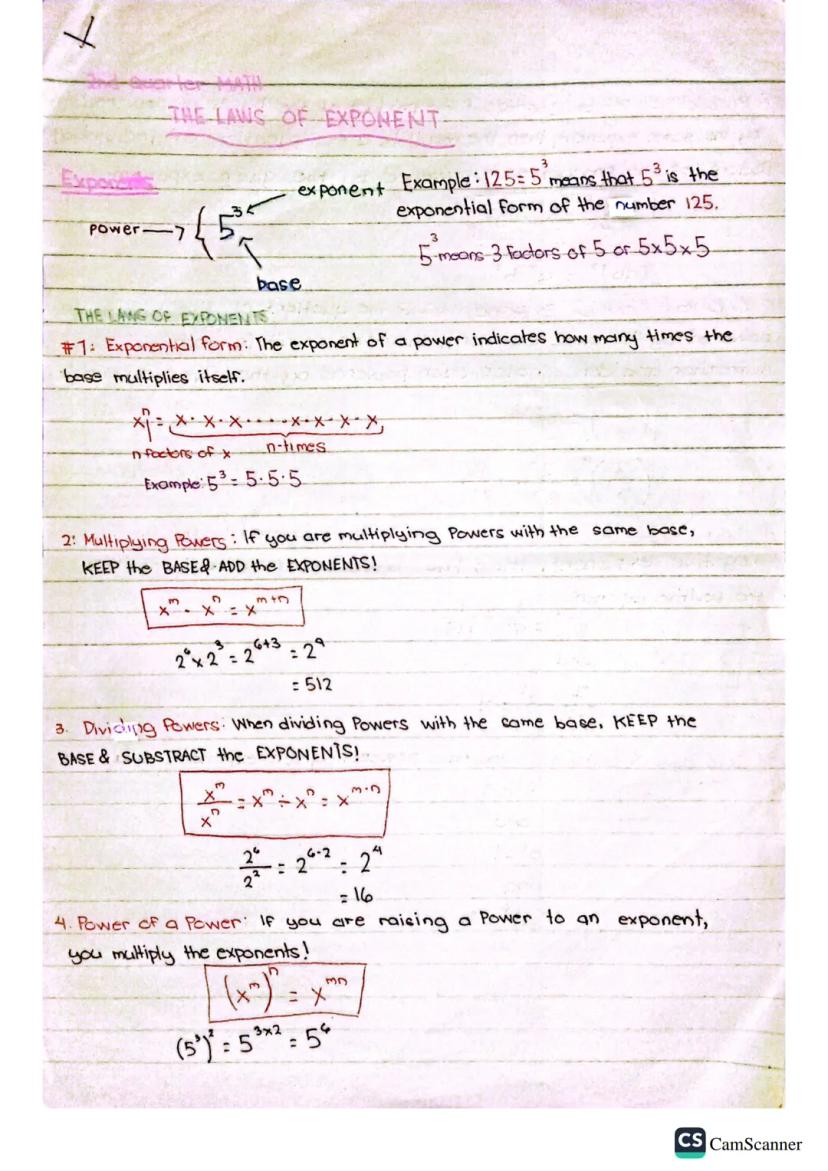 2nd Quarter MATH
THE LAWS OF EXPONENT
Exponents
exponent
power → { 5³
base
Example: 125 = 5³ means that 5³ is the
exponential form of the number 125.
5³ means 3 factors of 5 or 5x5x5
THE LAWS OF EXPONENTS
#1: Exponential form: The exponent of a power indicates how many times the
base multiplies itself.
xⁿ = x · x · x · · · · x · x · x · x
n factors of x n-times
Example: 5³ = 5·5·5
2: Multiplying Powers: If you are multiplying Powers with the same base,
KEEP the BASE & ADD the EXPONENTS!
xᵐ · xⁿ = xᵐ⁺ⁿ
2⁶ x 2³ = 2⁶⁺³ = 2⁹
= 512
3. Dividing Powers: When dividing Powers with the same base, KEEP the
BASE & SUBSTRACT the EXPONENTS!
xᵐ/xⁿ = xᵐ ÷ xⁿ = xᵐ⁻ⁿ
2⁶/2² = 2⁶⁻² = 2⁴
= 16
4. Power of a Power: If you are raising a Power to an exponent,
you multiply the exponents!
(xᵐ)ⁿ = xᵐⁿ
(5³)² = 5³ˣ² = 5⁶
CS CamScanner